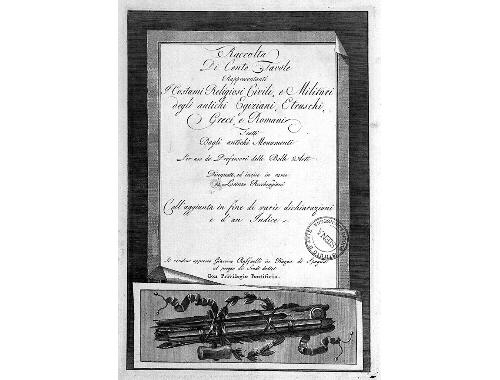 Raccolta
Di Cento Tavole
Rappresentanti
I Costumi Religiosi Civili, e Militari
degli antichi Egiziani, Etruschi,
Greci, e Romani
Tratti
Dagli antichi Monumenti
Per uso de' Professori delle Belle Arti
Disegnate, ed incise in rame
da Lorenzo Roccheggiani
Coll'aggiunta in fine di varie dichiarazioni
e d'un Indice
Si vendono appresso Giacomo Raffaelli in Piazza di Spagna
al prezzo di Scudi
Con Privilegio Pontificio.